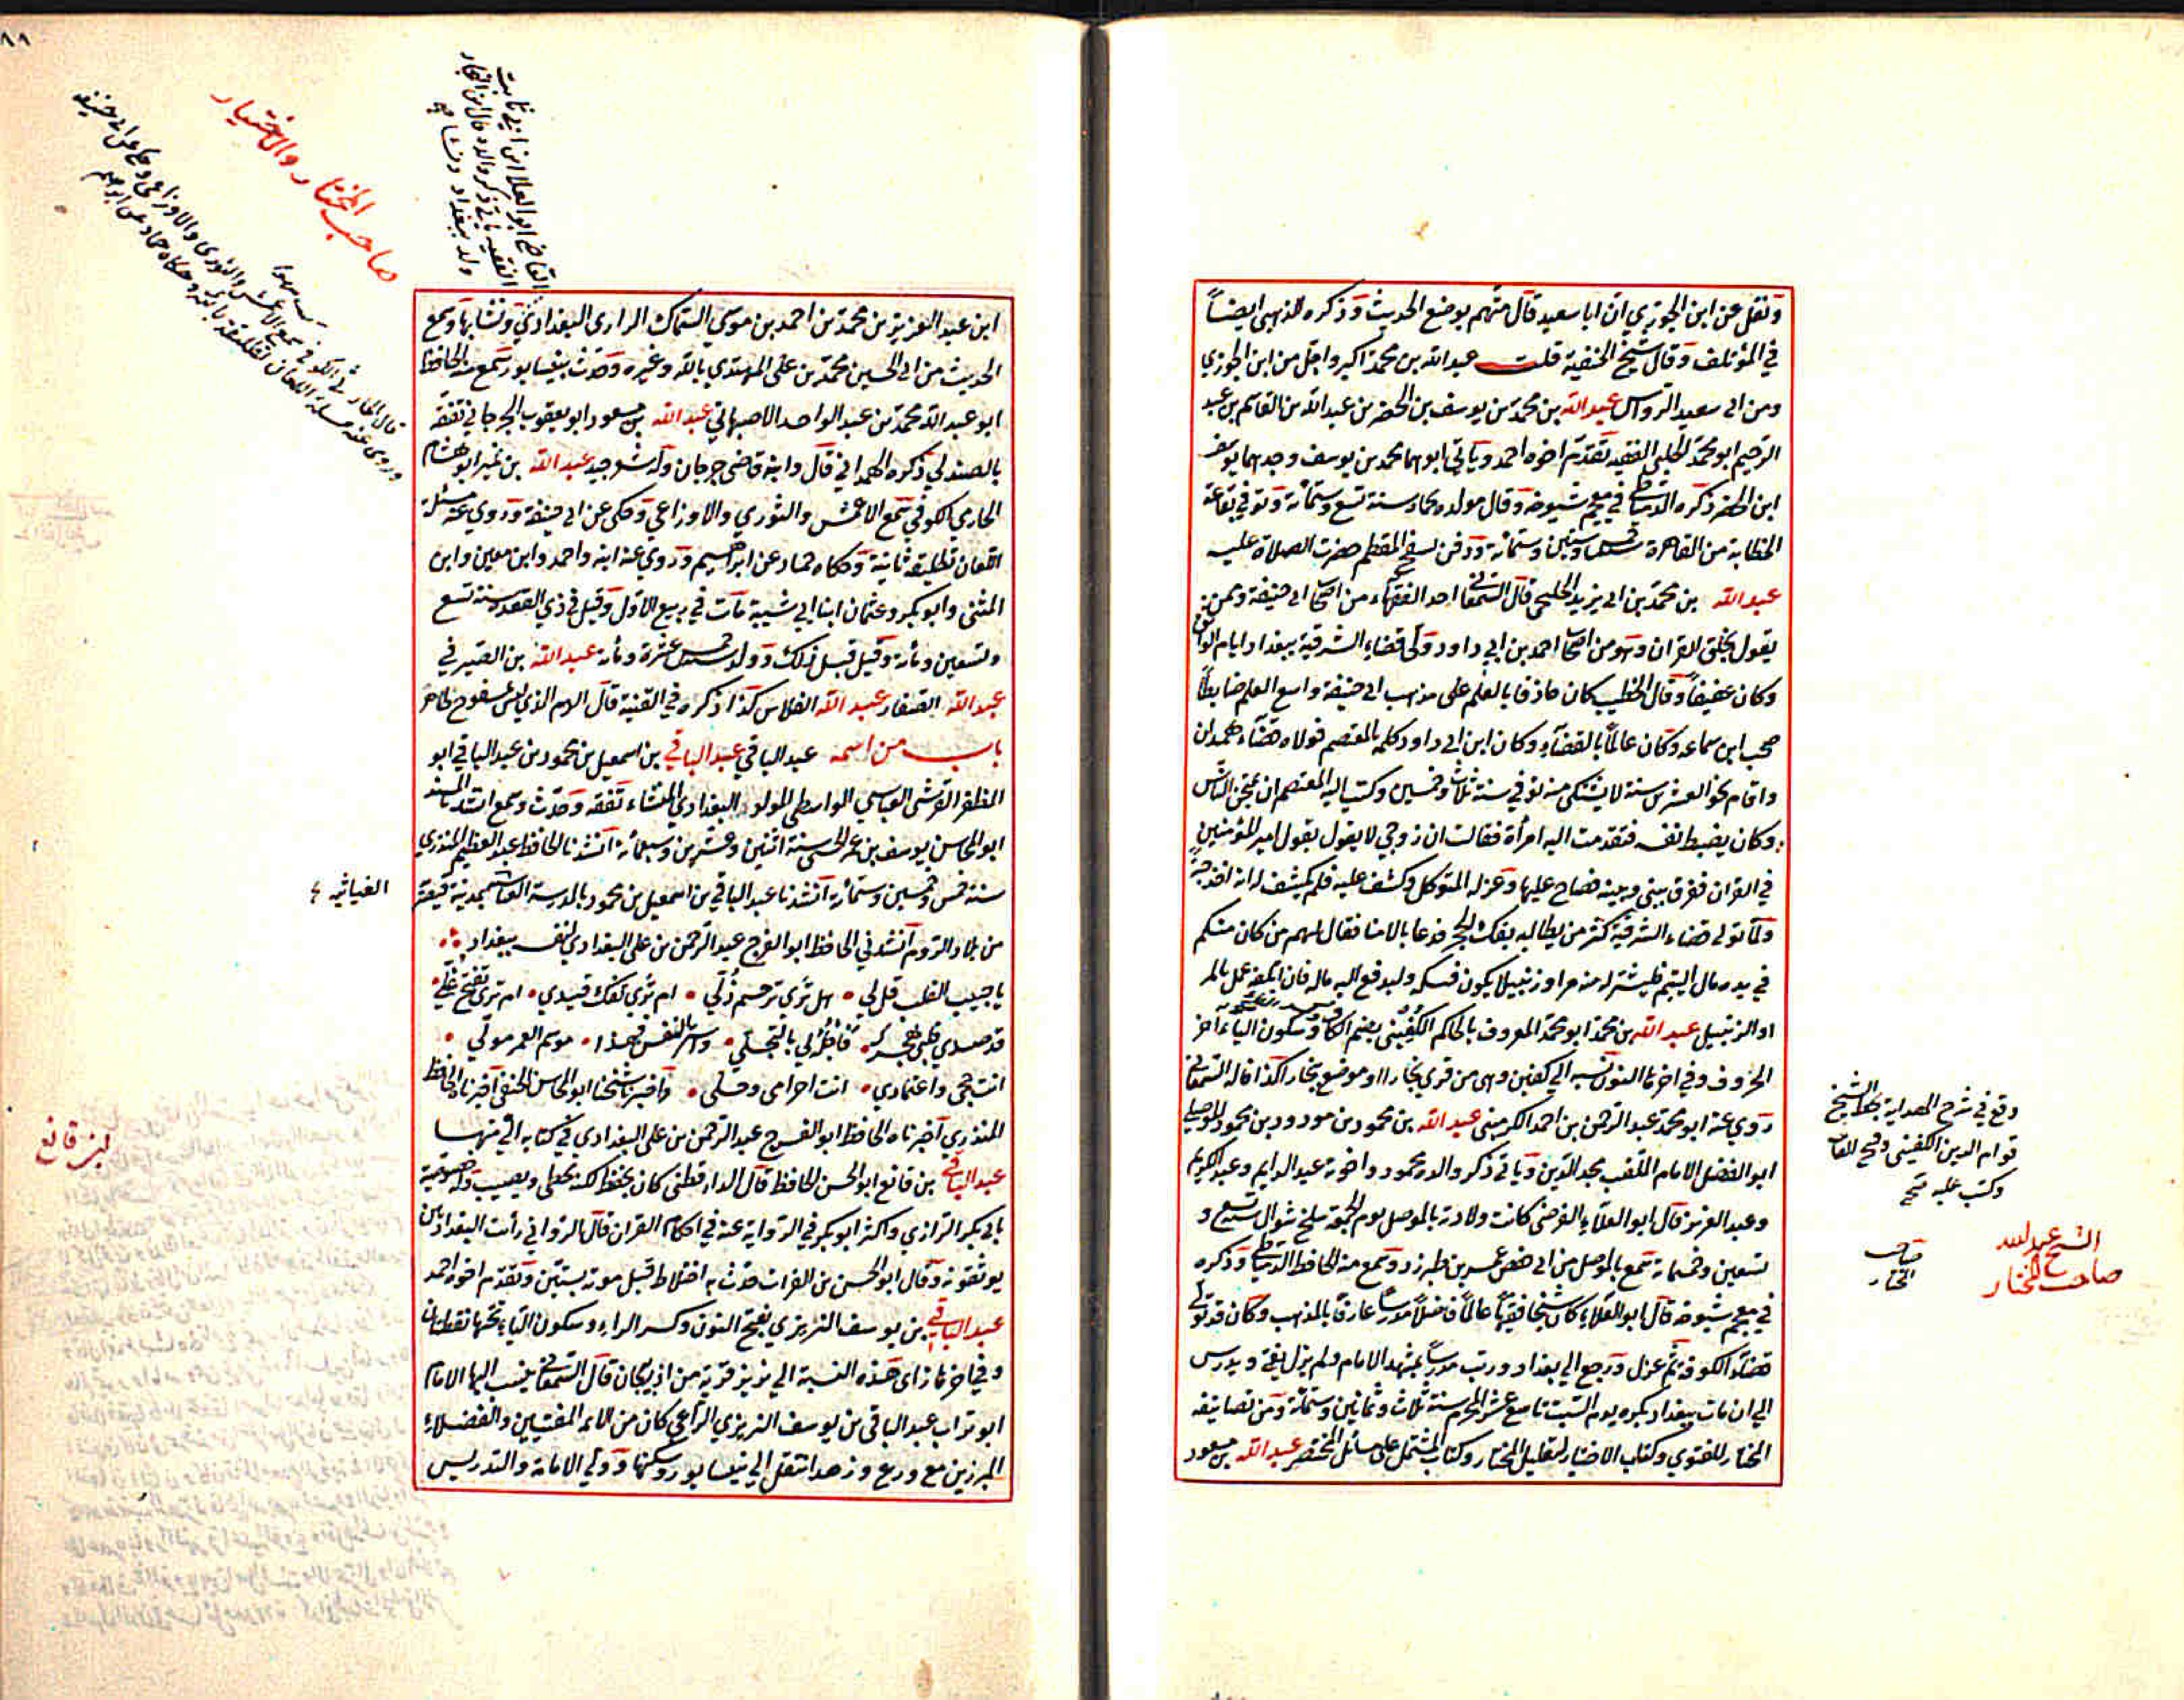 ونقل عن ابن الجوزي ان ابا سعيد قال متهم بوضع الحديث وذكره الذهبى ايضاً
في المؤتلف وقال شيخ الحنفية قلت عبد الله بن محمد اكبر واجل من ابن الجوزي
ومن ابي سعيد الرواس عبد الله بن محمد بن يوسف بن الخضر بن عبد الله بن القاسم بن عبد
الرحيم ابو محمد الحلبى الفقيه تقدم اخوه احمد وياتي ابوهما محمد بن يوسف وجدهما يوسف
ابن الخضر ذكره الدمياطي في معجم شيوخه وقال مولده بحماه سنة تسع وستمائة وتوفي بقاعة
الخطابة من القاهرة سنة وستين وستمائة ودفن بسفح المقطم حضرت الصلاة عليه
عبد الله بن محمد بن ابي يزيد الخليجي قال السمعاني احد الفقهاء من اصحاب ابي حنيفة وممن
يقول بخلق القران وهو من اصحاب احمد بن ابي داود ولى قضاء الشرقية ببغداد ايام الواثق
وكان عفيفاً وقال الخطيب كان حاذقا بالعلم على مذهب ابي حنيفة واسع العلم ضابطاً
صحب ابن سماعه وكان عالماً بالقضاء وكان ابن ابي داود كلم المعتصم فولاه قضاء همدان
واقام نحو العشرين سنة لا يشتكى منه توفي سنة ثلاث وخمسين وكتب اليه المعتصم ان يمتحن الناس
وكان يضبط نفسه فتقدمت اليه امرأة فقالت ان زوجي لا يقول بقول امير المؤمنين
في القران ففرق بيني وبينه فصاح عليها وعزله المتوكل وكشف عليه فلم يكشف
ولما تولى قضاء الشرقية كثر من يطالبه بفك الحجر فدعا بالامنا فقال لهم من كان منكم
في يده مال اليتيم فليشتر له منه مراوزنبيلا يكون قبله وليدفع اليه ماله فان اتلفه عمل بالمر
او الزنبيل عبد الله بن محمد ابو محمد المعروف بالحاكم الكفيني بضم الكاف وسكون الياء اخر
الحروف وفي اخرها النون نسبه الى كفين وهى من قري بخارا او موضع ببخارا كذا قاله السمعاني
روي عنه ابو محمد عبد الرحمن بن احمد الكرمينى عبد الله بن محمود بن مودود بن محمود الموصلي
ابو الفضل الامام الملقب مجد الدين وياتي ذكر والده محمود واخوته عبد الدايم وعبد الكريم
وعبد العزيز قال ابو العلاء الفرضي كانت ولادته بالموصل يوم الجمعة سلخ شوال سنة تسع و
تسعين وخمسمائة سمع بالموصل من ابي حفص عمر بن طبرزد وسمع منه الحافظ الدمياطي وذكره
في معجم شيوخه قال ابو العلاء كان شيخا فقيها عالماً فاضلاً مدرساً عارفاً بالمذهب وكان قد تولى
قضاء الكوفة ثم عزل ورجع الى بغداد ورتب مدرساً بمشهد الامام ولم يزل يفتي ويدرس
الى ان مات ببغداد بكره يوم السبت تاسع عشر المحرم سنة ثلاث وثمانين وستمائة ومن تصانيفه
المختار للفتوي وكتاب الاختيار لتعليل المختار وكتاب المشتمل على مسائل المختصر عبد الله بن مسعود
وقع في شرح الهداية بخط الشيخ
قوام الدين الكفيني وفتح الفاء
وكتب عليه صح
الشيخ عبد الله
صاحب المختار
صاحب
المختار
٨٨
القاضي ابو العلا ابن ابي ثابت
الفقيه ياتي ذكر والده قال ابن النجار
ولد ببغداد ونشا بها
صاحب المختار والاختيار
ابن عبد العزيز بن محمد بن احمد بن موسى السماك الرازي البغدادي ونشا بها وسمع
الحديث من ابي الحسين محمد بن على المهتدي بالله وغيره وحدث بنيسابور سمع منه الحافظ
ابو عبد الله محمد بن عبد الواحد الاصبهاني عبد الله بن مسعود ابو يعقوب الجرجاني تفقه
بالصندلي ذكره الهمداني قال وابنه قاضي جرجان وله شعر جيد عبد الله بن نمير ابو هشام
الخارفي الكوفي سمع الاعمش والثوري والاوزاعي وحكى عن ابي حنيفة وروي عنه مسئلة
اللعان تطليقة ثانية وحكاه حماد عن ابراهيم وروي عنه ابنه واحمد وابن معين وابن
المثنى وابو بكر وعثمان ابنا ابي شيبة مات في ربيع الاول وقيل في ذي القعدة سنة تسع
وتسعين ومائة وقيل قبل ذلك وولد سنة خمس عشرة ومائة عبد الله بن الصيرفي
عبد الله الصفار عبد الله الفلاس كذا ذكره في القنية قال الدم الذي ليس بمسفوح طاهر
باب من اسمه عبد الباقي عبد الباقي بن اسمعيل بن محمود بن عبد الباقي ابو
المظفر القرشى العباسي الواسطى المولد البغدادي المنشاء تفقه وحدث وسمع
ابو المحاسن يوسف بن عمر الحنفى سنة اثنين وعشرين وسبعمائة انشدنا الحافظ عبد العظيم المنذري
سنة خمس وخمسين وستمائة انشدنا عبد الباقي بن اسمعيل بن محمود بالمدرسة بمدينة
الغياثيه
من بلاد الروم انشدني الحافظ ابو الفرج عبد الرحمن بن على البغدادي لنفسه ببغداد
يا حبيب القلب قل لي • هل تري ترحم ذلي • ام تري تفك قيدي • ام تري تفتح غلي •
قد صدي قلبي بهجرك • فاجله لي بالتجلي • • موسم العمر مولي •
انت حجي واعتمادي • انت احرامى وحلى • واخبرنا شيخنا ابو المحاسن الحنفى اخبرنا الحافظ
المنذري اخبرناه الحافظ ابو الفرج عبد الرحمن بن على البغدادي في كتابه الي منها
عبد الباقي بن قانع ابو الحسن الحافظ قال الدارقطنى كان يحفظ لكنه يخطى ويصيب وله خصوصية
بابي بكر الرازي واكثر ابو بكر في الرواية عنه في احكام القران قال البرقاني رأيت البغداديين
يوثقونه وقال ابو الحسن بن الفرات حدث به اختلاط قبل موته بسنتين وتقدم اخوه احمد
عبد الباقي بن يوسف النريزي بفتح النون وكسر الراء وسكون الياء تحتها نقطتان
وفي اخرها زاى هذه النسبة الى نريز قرية من اذربيجان قال السمعاني ينسب اليها الامام
ابو تراب عبد الباقى بن يوسف النريزي المراغي كان من الائمه المفتيين والفضلاء
المبرزين مع ورع وزهد انتقل الى نيسابور وسكنها وولي الامامة والتدريس
ابن قانع